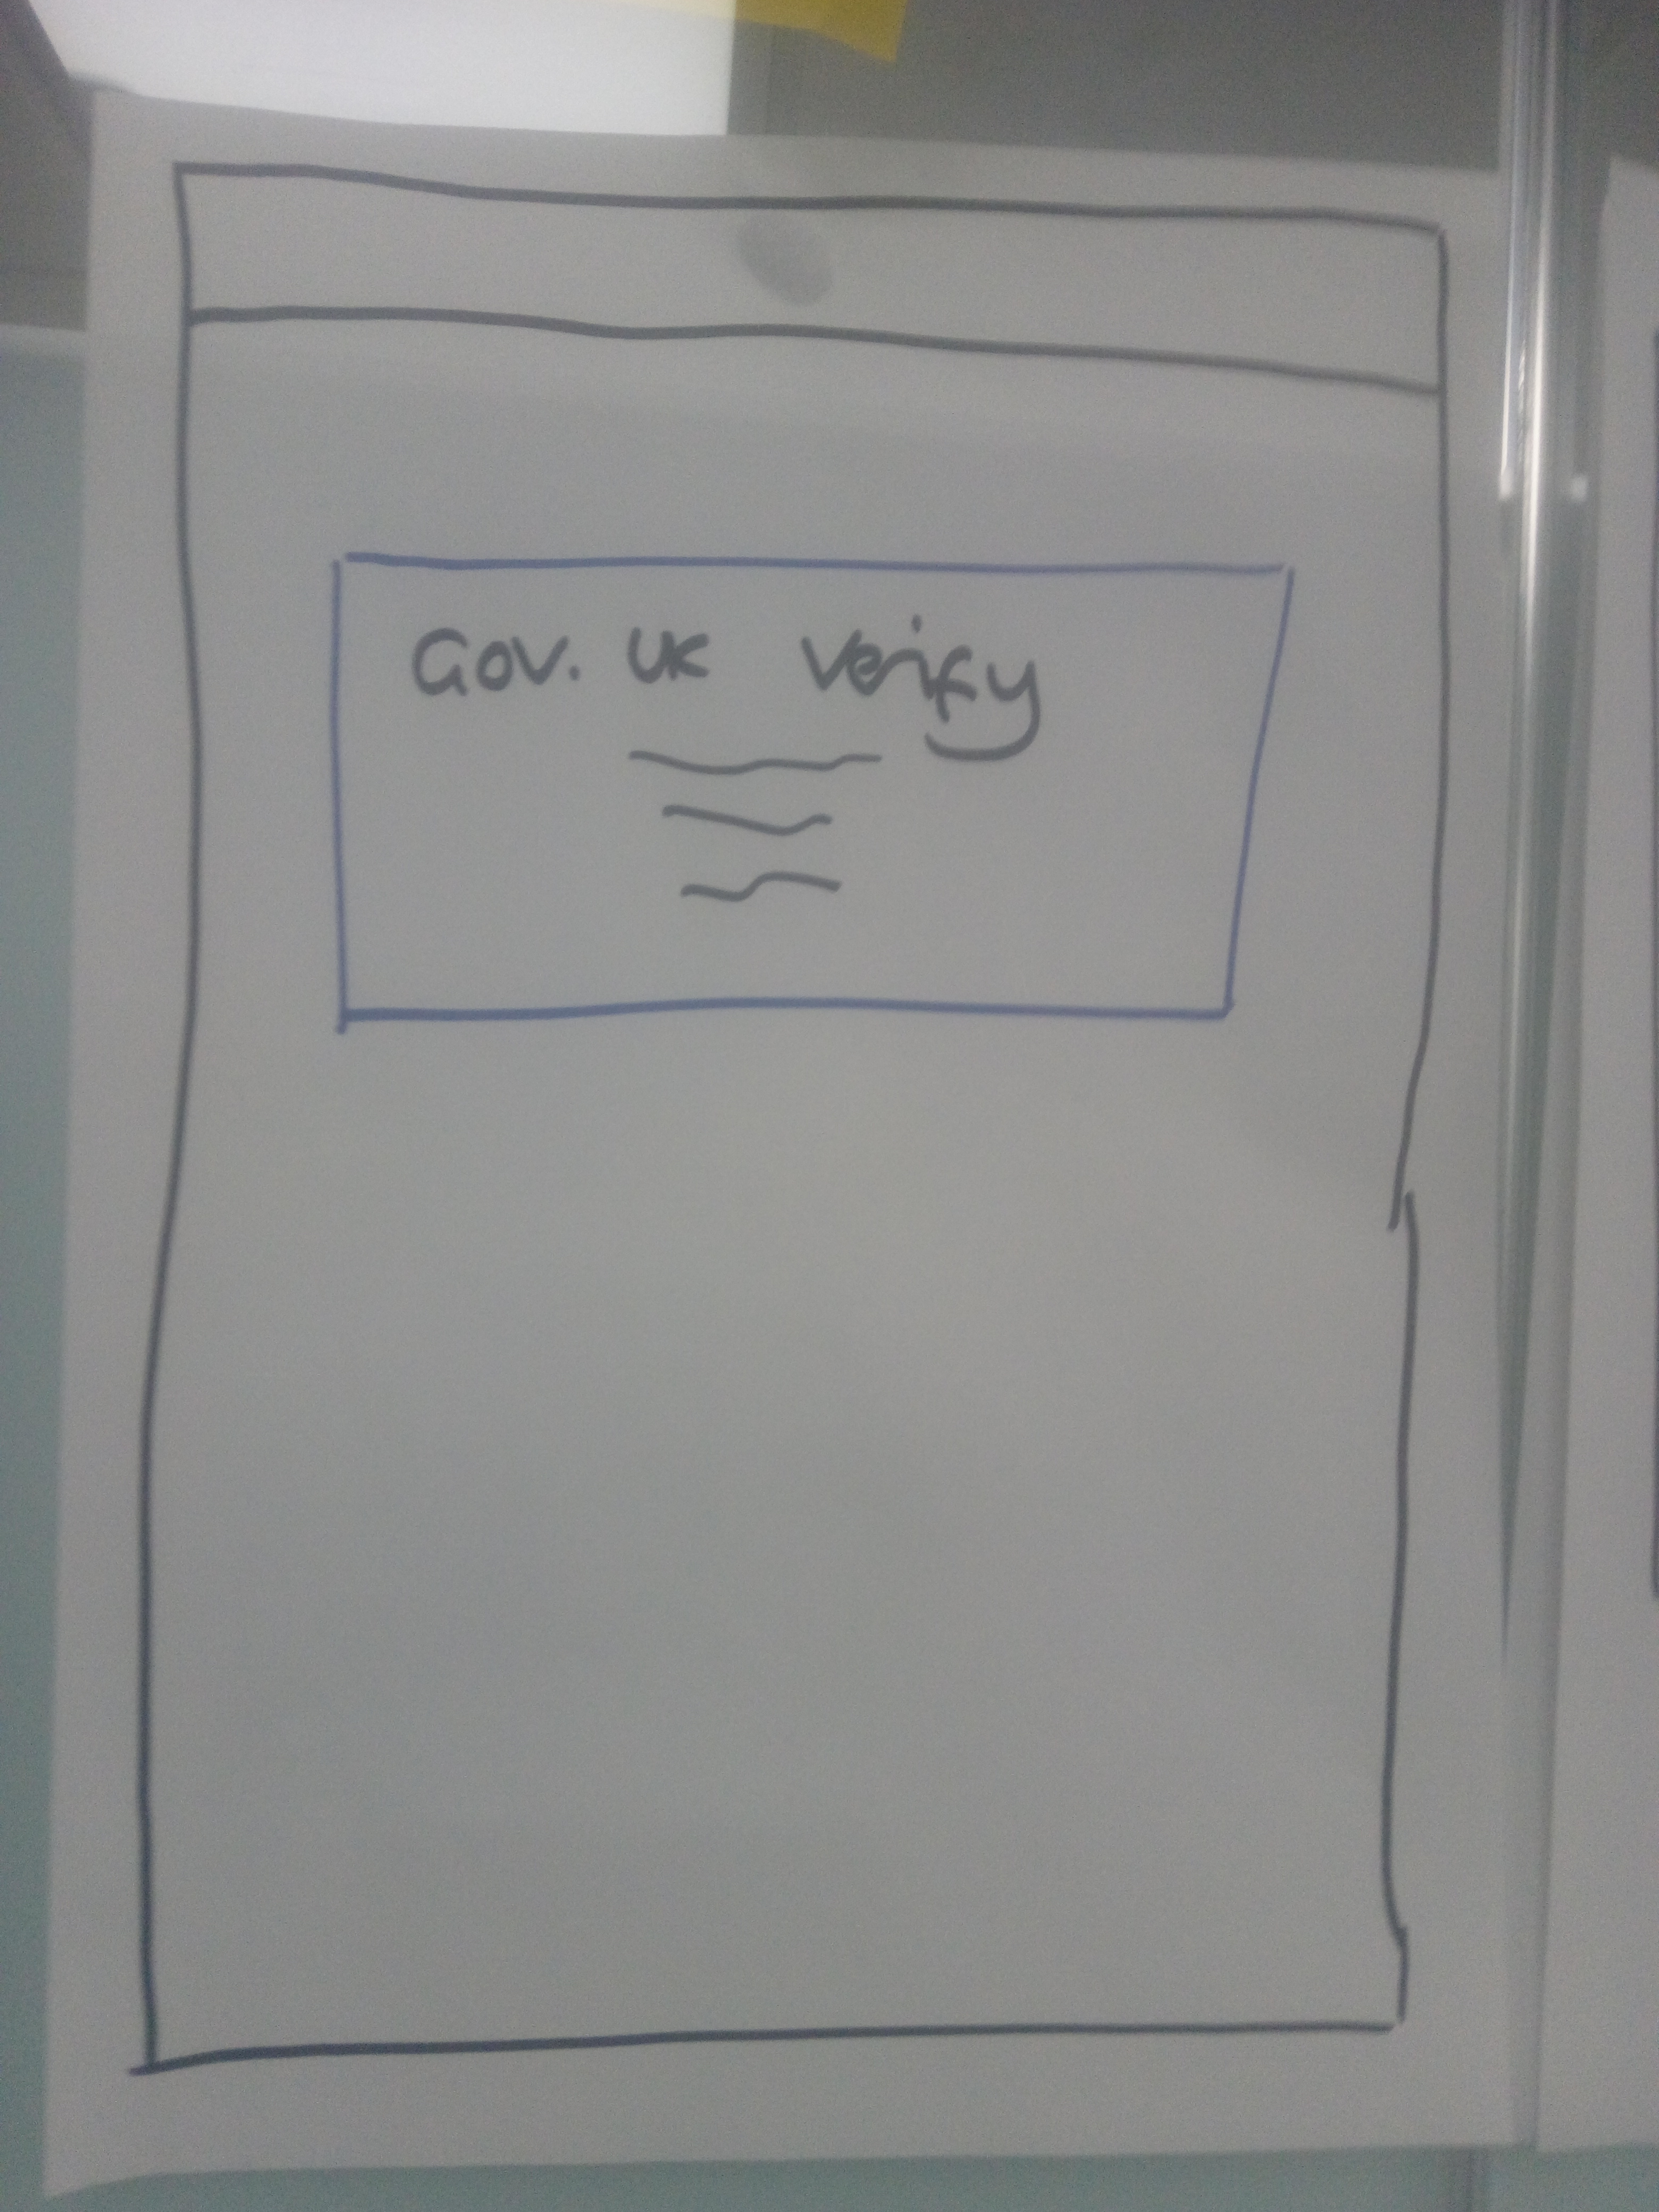 Gov. UK Verify